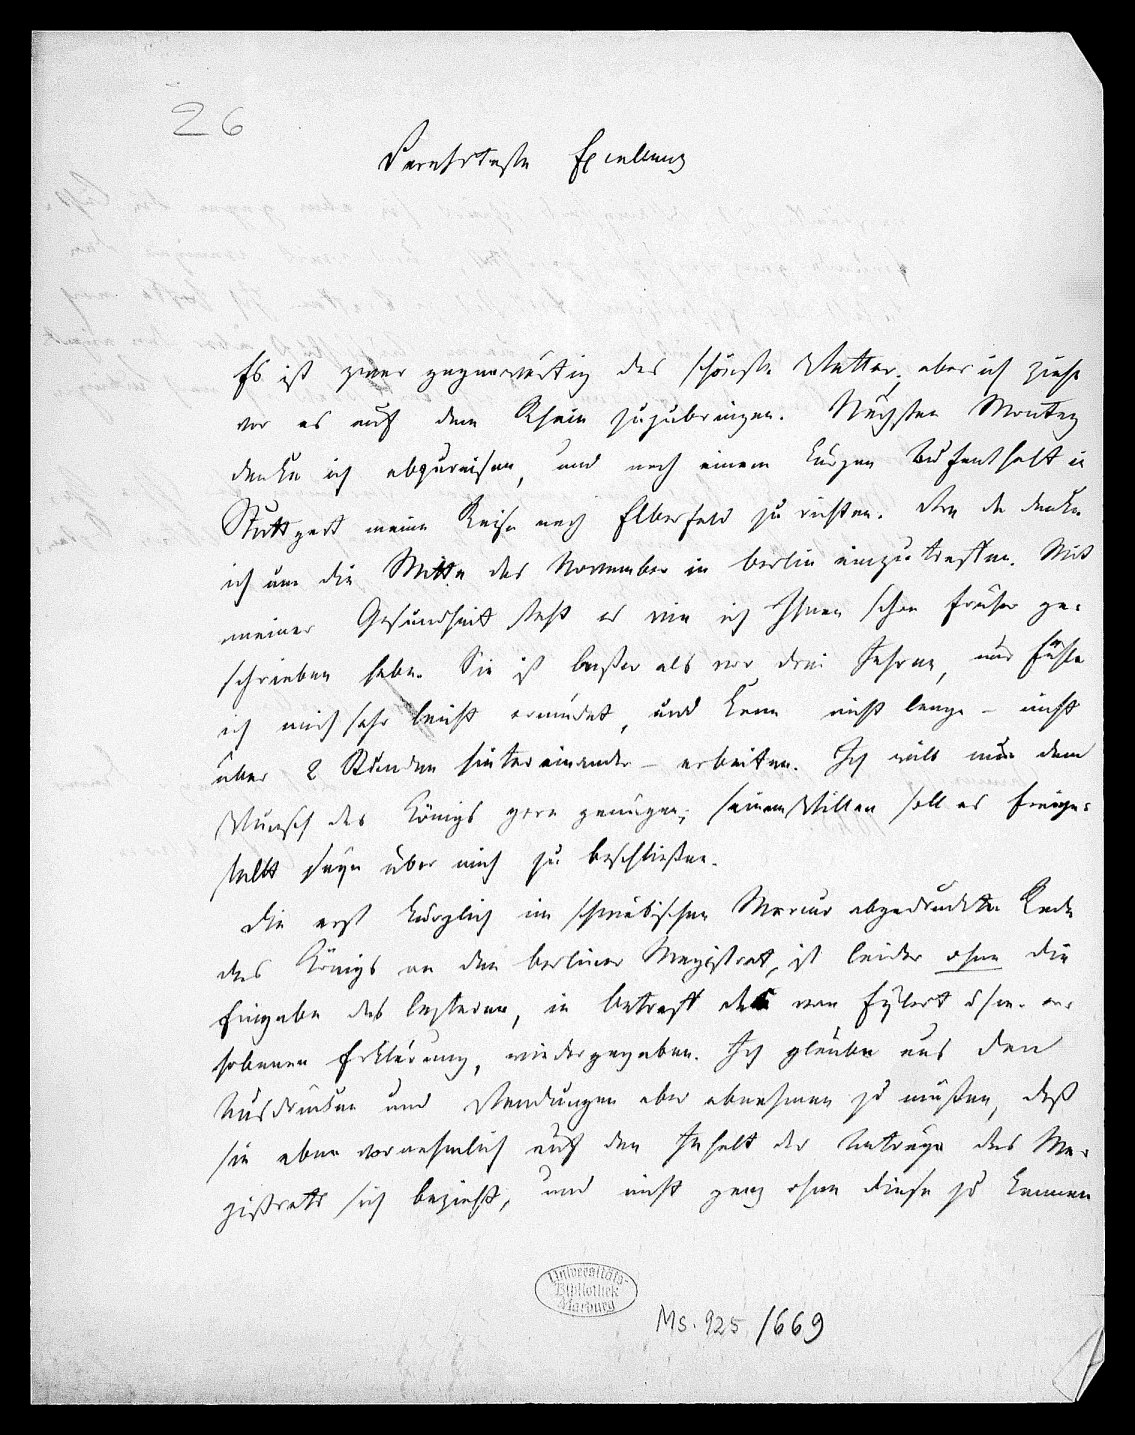 26
Verehrteste Excellenz
Es ist zwar gegenwärtig das schönste Wetter, aber ich ziehe
vor es auf dem Rhein zuzubringen. Nächsten Montag
denke ich abzureisen, und nach einem kurzen Aufenthalt in
Stuttgart meine Reise nach Elberfeld zu richten. Von da denke
ich um die Mitte des November in Berlin einzutreffen. Mit
meiner Gesundheit steht es wie ich Ihnen schon früher ge-
schrieben habe. Sie ist besser als vor drei Jahren, nur fühle
ich mich sehr leicht ermüdet, und kann nicht lange – nicht
über 2 Stunden hintereinander – arbeiten. Ich will nun dem
Wunsch des Königs gern genügen; seinem Willen soll es freige-
stellt seyn über mich zu beschließen.
Die erst kürzlich im schwäbischen Mercur abgedruckte Rede
des Königs an den Berliner Magistrat, ist leider ohne die
Eingabe des lezteren, in betreff der von Eylert erho-
benen Erklärung, wiedergegeben. Ich glaube aus den
Ausdrücken und Wendungen aber abnehmen zu müßen, daß
sie eben vornehmlich auf den Inhalt der Anträge des Ma-
gistrats sich bezieht, und nicht ganz ohne diese zu kennen
Universitäts-
Bibliothek
Marburg
Ms. 925/669